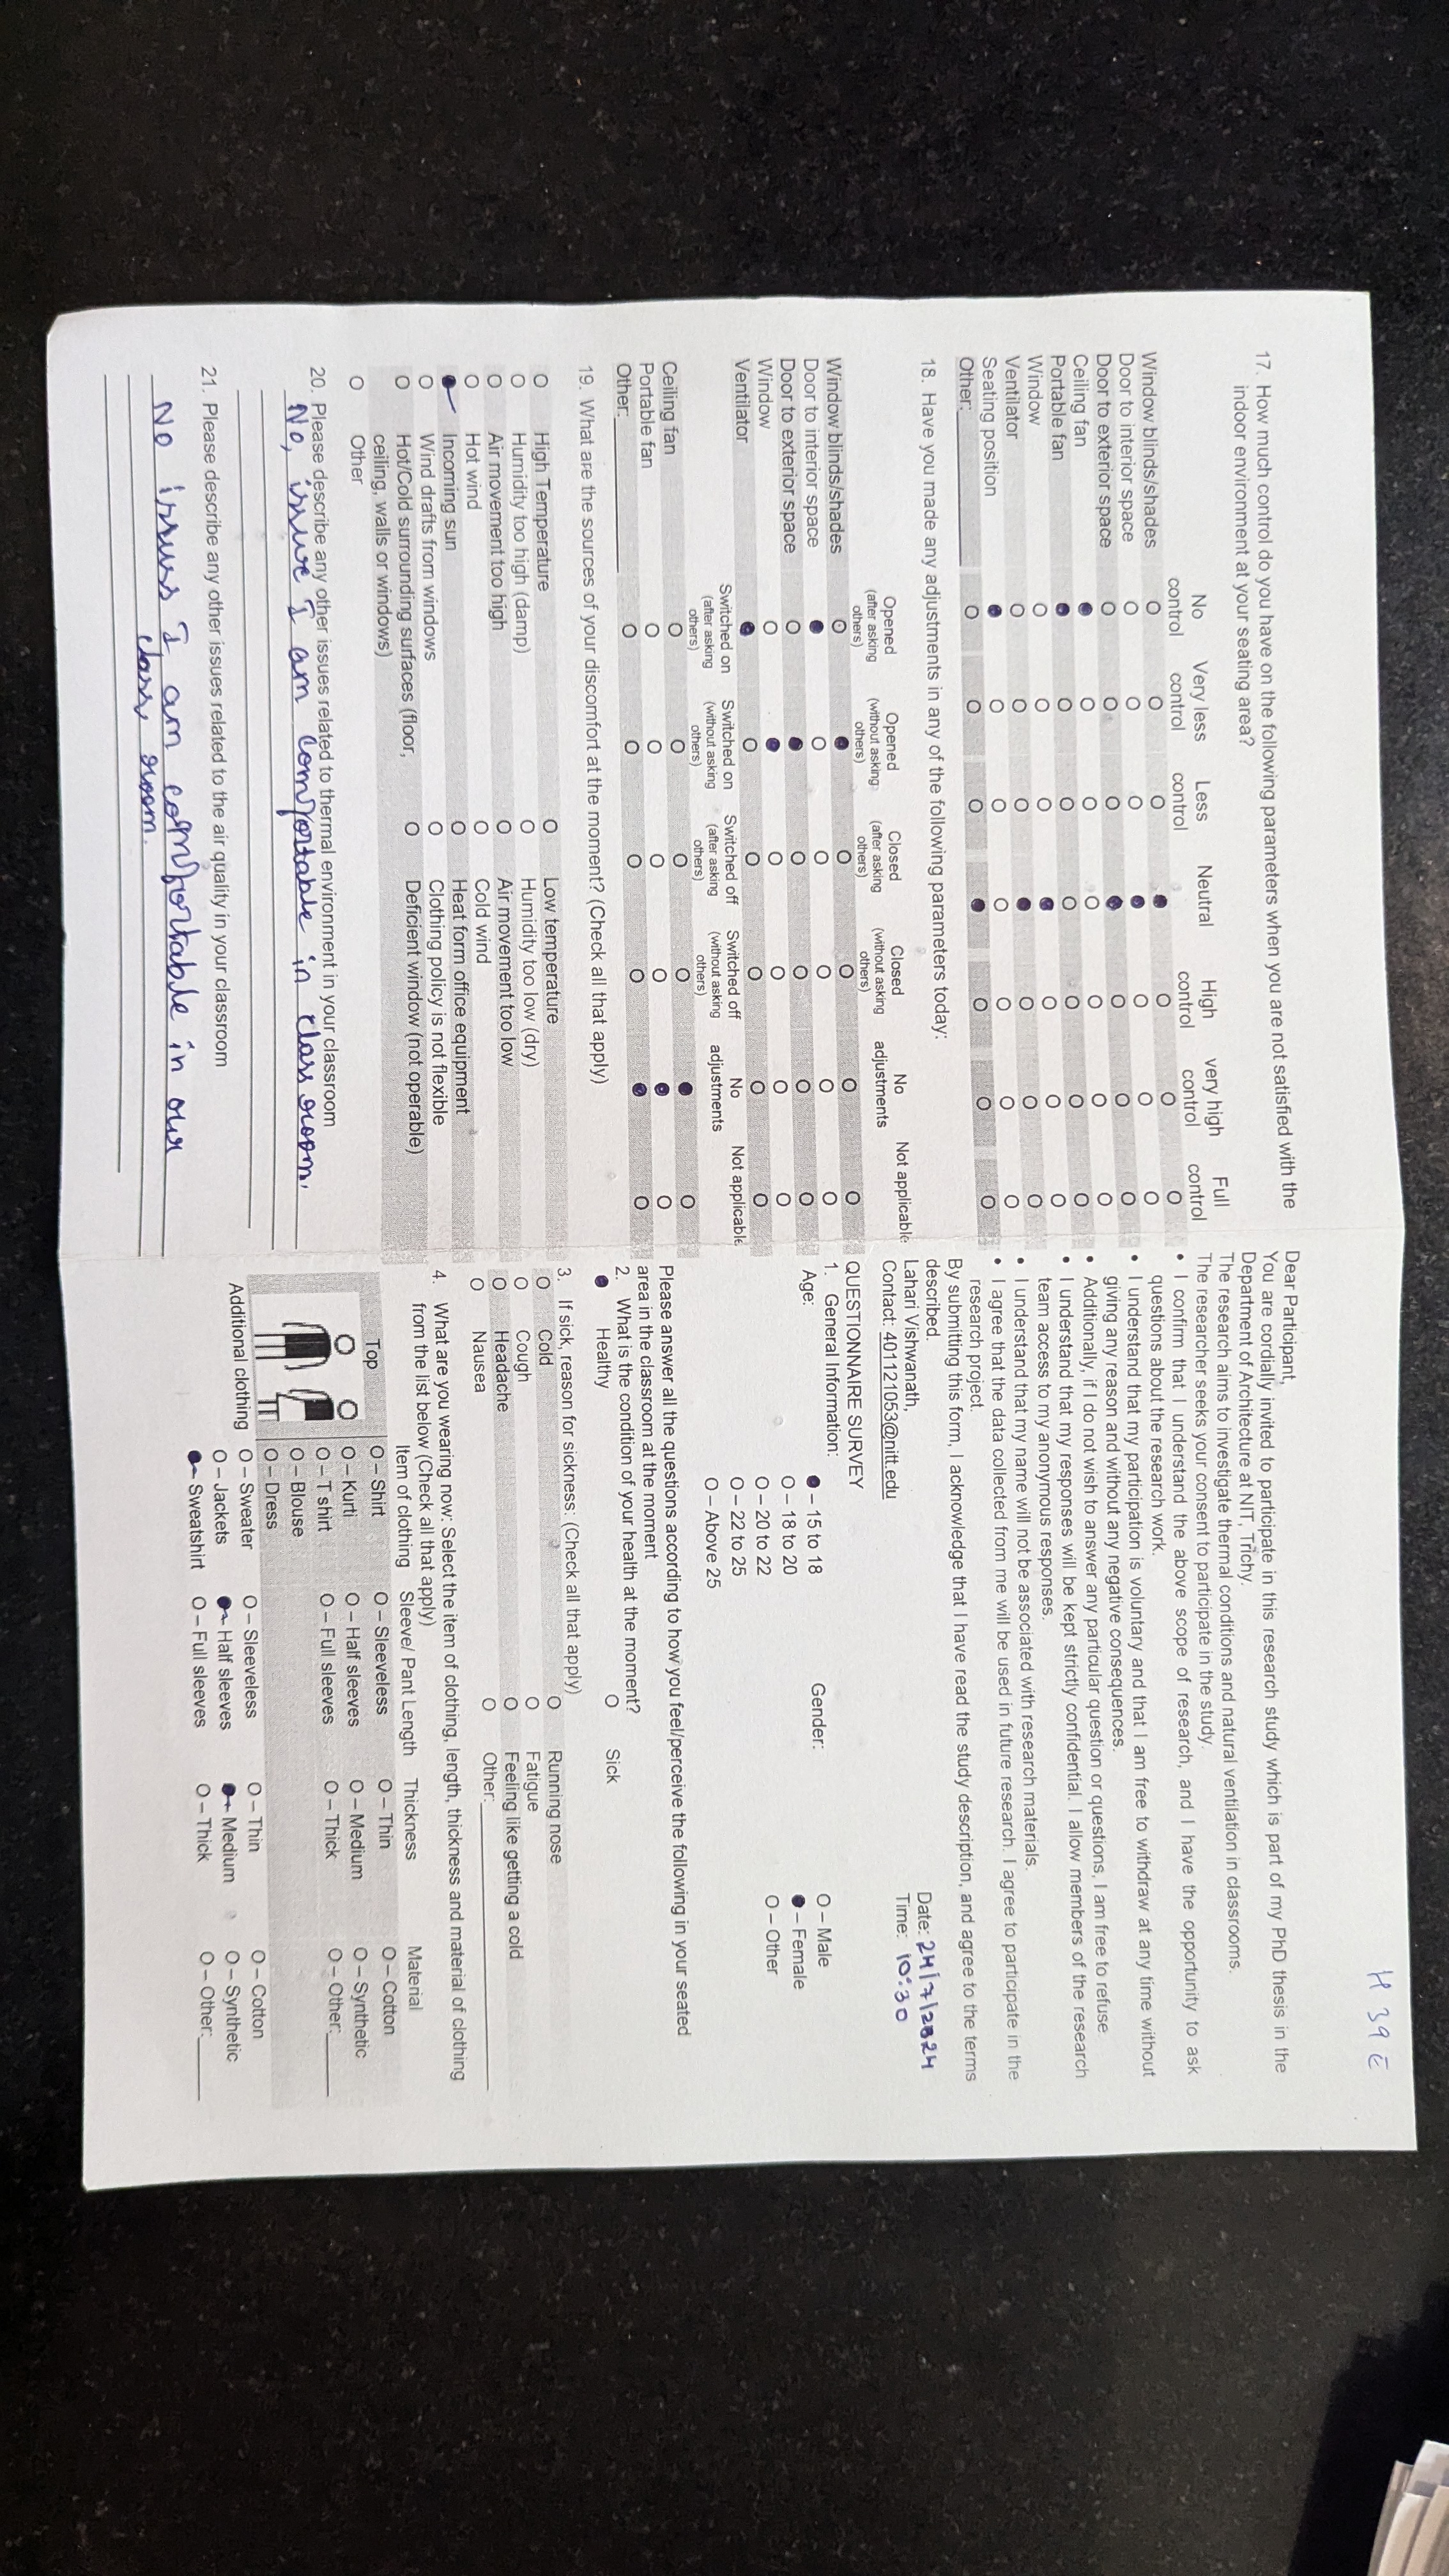 17. How much control do you have on the following parameters when you are not satisfied with the
indoor environment at your seating area?
No control Very less control Less control Neutral High control very high control Full control
Window blinds/shades O O O ● O O O
Door to interior space O O O ● O O O
Door to exterior space O O O ● O O O
Ceiling fan ● O O O O O O
Portable fan ● O O O O O O
Window O O O ● O O O
Ventilator O O O ● O O O
Seating position ● O O O O O O
Other:________ O O O ● O O O
18. Have you made any adjustments in any of the following parameters today:
Opened (after asking others) Opened (without asking others) Closed (after asking others) Closed (without asking others) No adjustments Not applicable
Window blinds/shades O ● O O O O
Door to interior space ● O O O O O
Door to exterior space O ● O O O O
Window O ● O O O O
Ventilator ● O O O O O
Switched on (after asking others) Switched on (without asking others) Switched off (after asking others) Switched off (without asking others) No adjustments Not applicable
Ceiling fan O O O O ● O
Portable fan O O O O ● O
Other:________ O O O O ● O
19. What are the sources of your discomfort at the moment? (Check all that apply)
O High Temperature O Low temperature
O Humidity too high (damp) O Humidity too low (dry)
O Air movement too high O Air movement too low
O Hot wind O Cold wind
● Incoming sun O Heat form office equipment
O Wind drafts from windows O Clothing policy is not flexible
O Hot/Cold surrounding surfaces (floor, O Deficient window (not operable)
ceiling, walls or windows)
O Other
20. Please describe any other issues related to thermal environment in your classroom
No, issue I am comfortable in class room.
21. Please describe any other issues related to the air quality in your classroom
No issues I am comfortable in our
class, room.
H 39 E
Dear Participant,
You are cordially invited to participate in this research study which is part of my PhD thesis in the
Department of Architecture at NIT, Trichy.
The research aims to investigate thermal conditions and natural ventilation in classrooms.
The researcher seeks your consent to participate in the study.
• I confirm that I understand the above scope of research, and I have the opportunity to ask
questions about the research work.
• I understand that my participation is voluntary and that I am free to withdraw at any time without
giving any reason and without any negative consequences.
• Additionally, if I do not wish to answer any particular question or questions, I am free to refuse.
• I understand that my responses will be kept strictly confidential. I allow members of the research
team access to my anonymous responses.
• I understand that my name will not be associated with research materials.
• I agree that the data collected from me will be used in future research. I agree to participate in the
research project.
By submitting this form, I acknowledge that I have read the study description, and agree to the terms
described.
Lahari Vishwanath,
Contact: 401121053@nitt.edu
Date: 24/7/2024
Time: 10:30
QUESTIONNAIRE SURVEY
1. General Information:
Age: ● – 15 to 18 Gender: O – Male
O – 18 to 20 ● – Female
O – 20 to 22 O – Other
O – 22 to 25
O – Above 25
Please answer all the questions according to how you feel/perceive the following in your seated
area in the classroom at the moment
2. What is the condition of your health at the moment?
● Healthy O Sick
3. If sick, reason for sickness: (Check all that apply)
O Cold O Running nose
O Cough O Fatigue
O Headache O Feeling like getting a cold
O Nausea O Other:________
4. What are you wearing now: Select the item of clothing, length, thickness and material of clothing
from the list below (Check all that apply)
Item of clothing Sleeve/ Pant Length Thickness Material
Top O – Shirt O – Sleeveless O – Thin O – Cotton
O – Kurti O – Half sleeves O – Medium O – Synthetic
O – T shirt O – Full sleeves O – Thick O – Other:____
O – Blouse
O – Dress
Additional clothing O – Sweater O – Sleeveless O – Thin O – Cotton
O – Jackets ● – Half sleeves ● – Medium O – Synthetic
● – Sweatshirt O – Full sleeves O – Thick O – Other:____